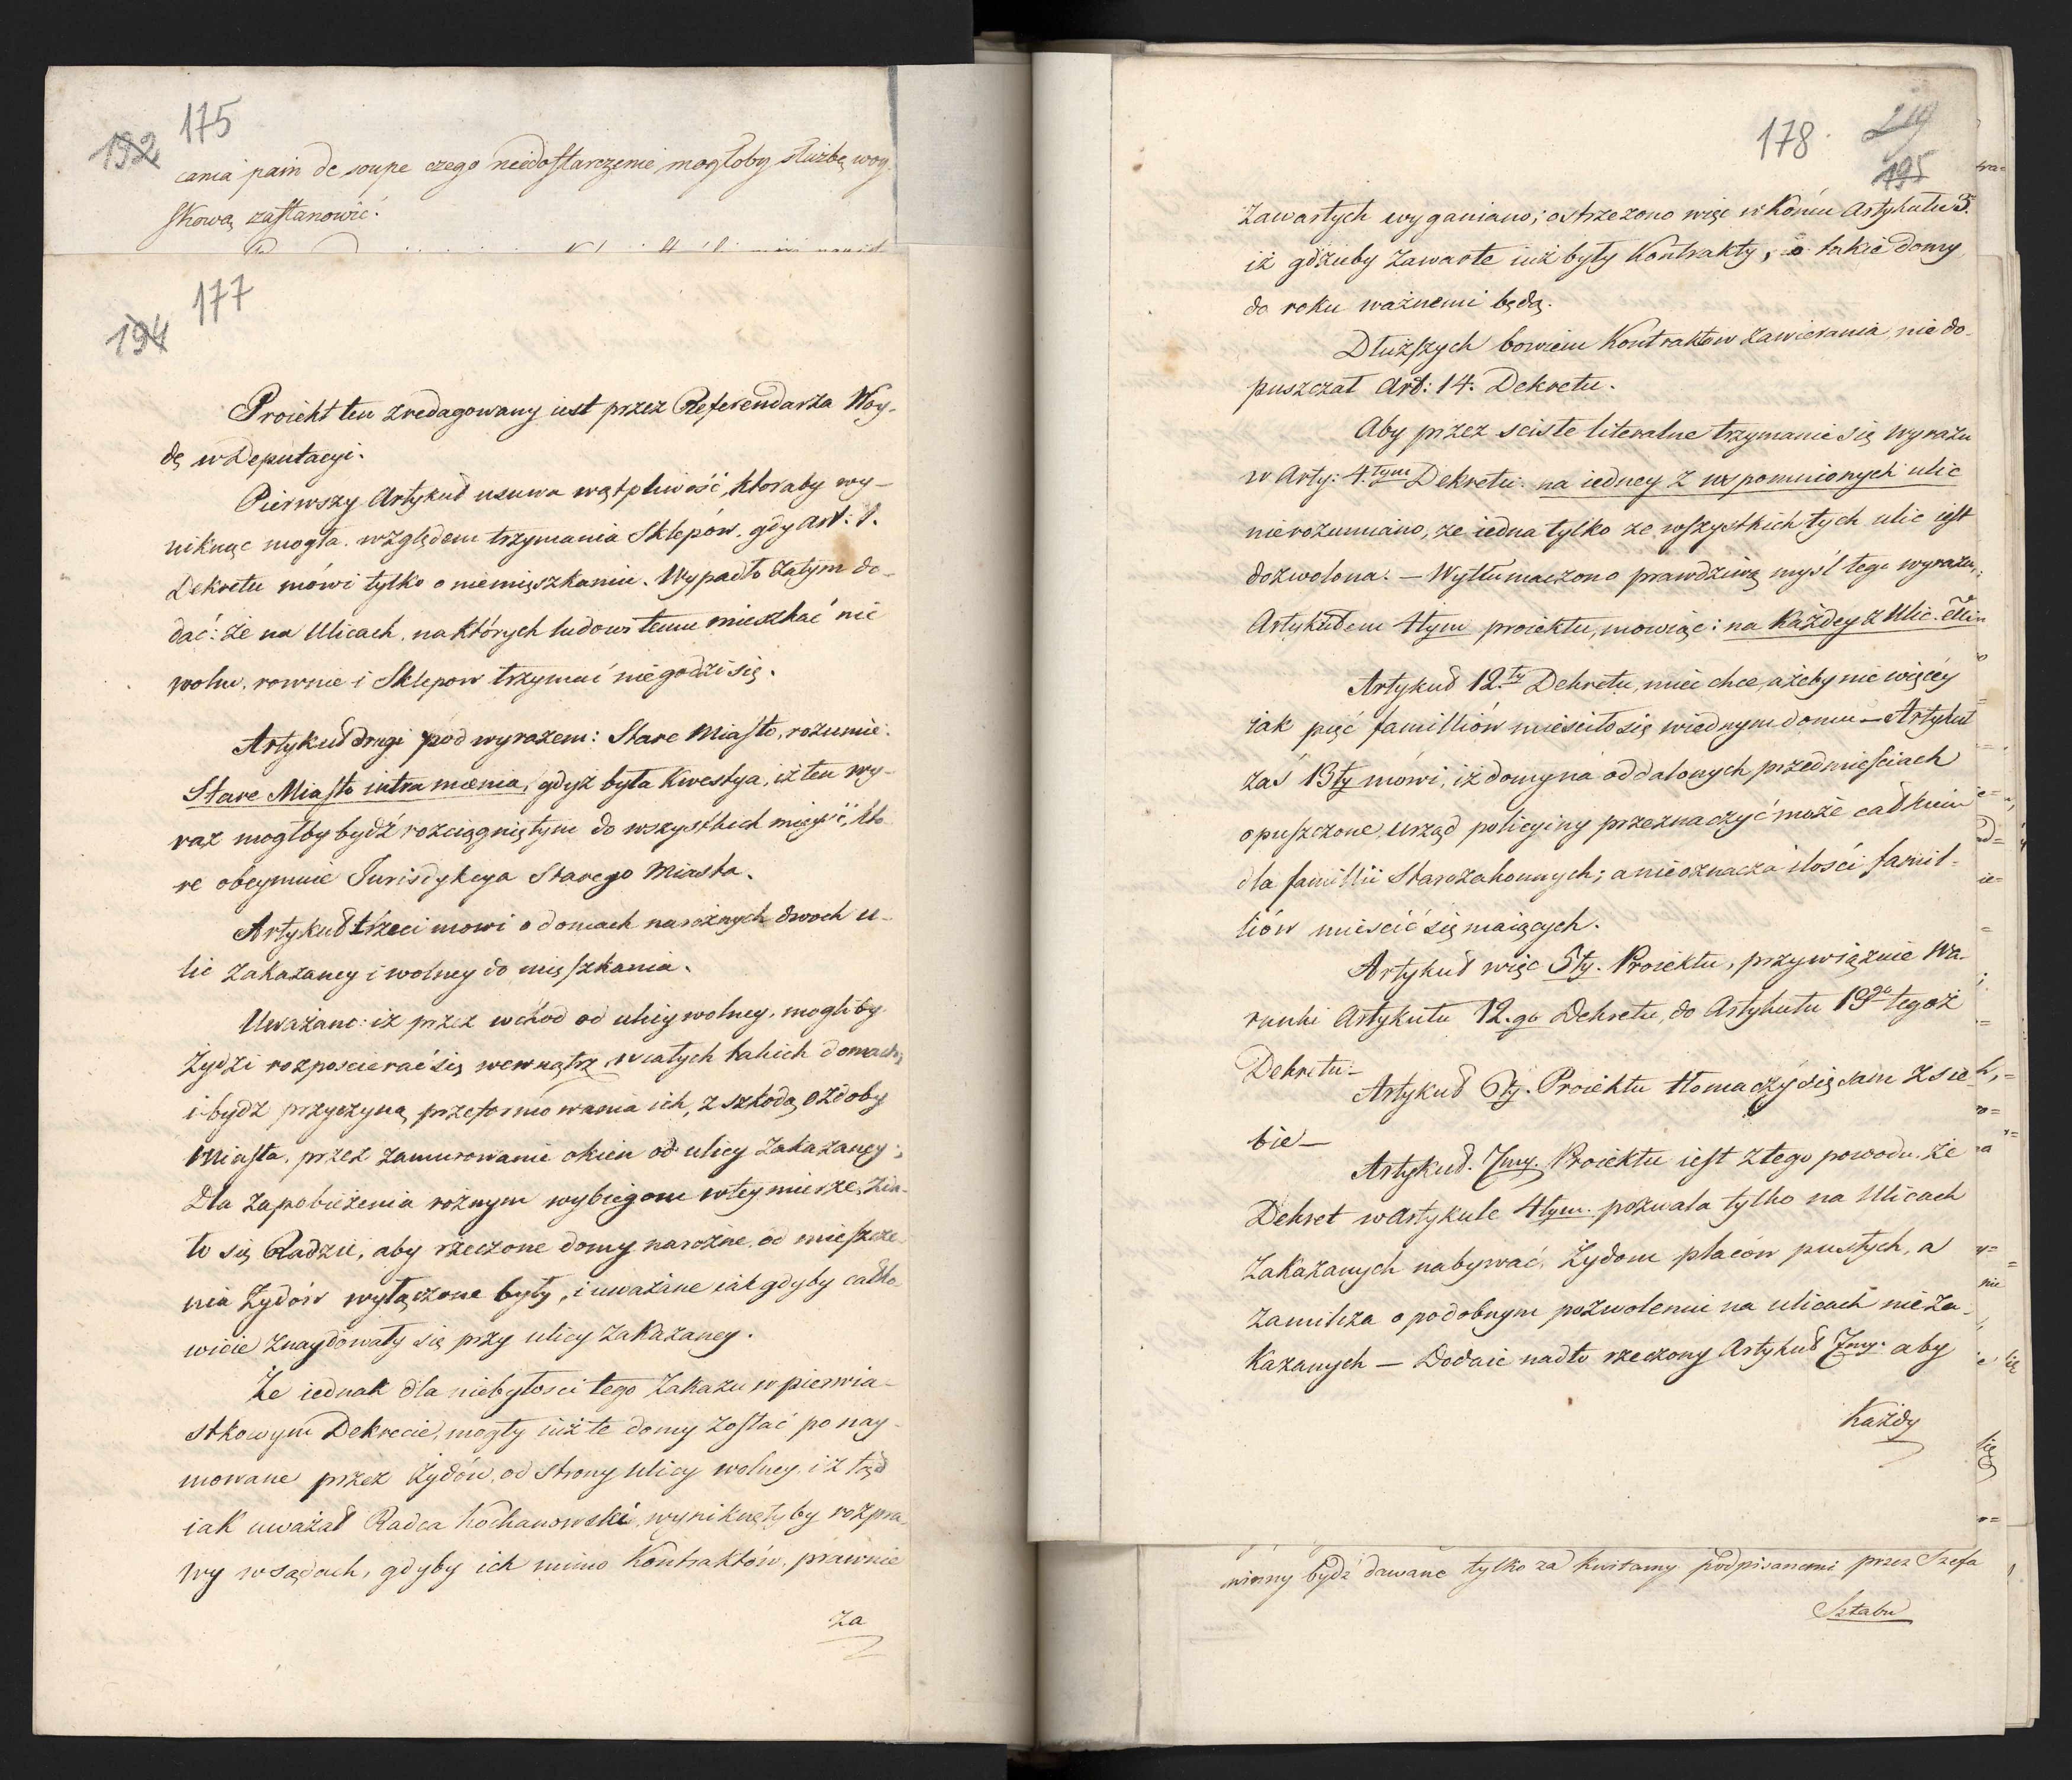 175
192
cania pain de soupe czego niedostarczenie mogłoby służbę woy
skową zastanowić.
177
194
Proiekt ten zredagowany iest przez Referendarza Woy-
dę w Deputacyi.
Pierwszy Artykuł usuwa wątpliwość, ktoraby wy-
niknąc mogła. względem trzymania Sklepów. gdy Art: 1.
Dekretu mówi tylko o niemięszkaniu. Wypadło zatym do-
dać: że na Ulicach, na których ludowi temu mieszkać nie
wolno, rownie i Sklepow trzymać nie godzi się.
Artykuł drugi pod wyrazem: Stare Miasto, rozumie:
Stare Miasto intra mœnia, gdyż była Kwestya, iż ten wy-
raz mogłby bydź rozciągniętym do wszystkich mieysc, kto-
re obeymuie Jurisdykcya Starego Miasta.
Artykuł trzeci mowi o domach narożnych dwoch u-
lic zakazaney i wolney do mięszkania.
Uważano: iż przez wchod od ulicy wolney, mogliby
Żydzi rozposcierać się wewnątrz w całych takich domach,
i bydz przyczyną przeformowania ich, z szkodą ozdoby
Miasta, przez zamurowanie okien od ulicy zakazaney;
Dla zapobieżenia rożnym wybiegom w tey mierze, zda-
ło się Radzie, aby rzeczone domy narożne od mieszcze-
nia Żydów wyłączone były, i uważane iak gdyby całko-
wicie znaydowały się przy ulicy zakazaney.
Że iednak dla niebytosci tego zakazu w pierwia-
stkowym Dekrecie, mogły iuż te domy zostać ponay-
mowane przez Żydów, od strony ulicy wolney, i z tąd
iak uważał Radca Kochanowski, wyniknęłyby rozpra-
wy w sądach, gdyby ich mimo Kontraktów, prawnie
za
178.
219
195
zawartych wyganiano; ostrzeżono więc w końcu Artykułu 3.
iż gdzieby zawarte iuż były Kontrakty, o takie domy
do roku ważnemi będą.
Dłuższych bowiem Kontraktow zawierania, nie do-
puszczał Art: 14. Dekretu.
Aby przez sciste literalne trzymanie się wyrazu
w Arty: 4.tym Dekretu: na iedney z wspomnionych ulic
nierozumiano, że iedna tylko ze wszystkich tych ulic iest
dozwolona. — Wytłumaczono prawdziwą myśl tego wyrazu,
Artykułem 4tym proiektu, mowiąc: na każdey z Ulic.
Artykuł 12.ty Dekretu, mieć chce, ażeby nie więcéy
iak pięć familliów mieściło się w iednym domu — Artykuł
zaś 13ty mówi, iż domy na oddalonych przedmieściach
opuszczone, urząd policyiny przeznaczyć może całkiem
dla famillii Starozakonnych; a nieoznacza ilości famil-
liów mieścić się maiących.
Artykuł więc 5ty. Proiektu, przywiązuie Wa-
runki Artykułu 12.go Dekretu, do Artykułu 13go tegoż
Dekretu —
Artykuł 6ty. Proiektu tłomaczy się sam z sie-
bie —
Artykuł. 7my. Proiektu iest z tego powodu, że
Dekret w Artykule 4tym. pozwala tylko na Ulicach
zakazanych nabywać, Żydom placów pustych, a
zamilcza o podobnym pozwoleniu na ulicach nieza-
kazanych — Dodaie nadto rzeczony Artykuł 7my. aby
Każdy
winny bydź dawane tylko za kwitamy podpisanemi przez Szefa
Sztabu